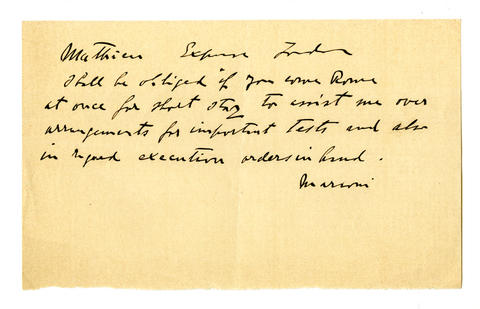 Mathieu Expanse London
Shall be obliged if you come Rome
at once for short stay to assist me over
arrangements for important tests and also
in regard execution orders in hand.
Marconi